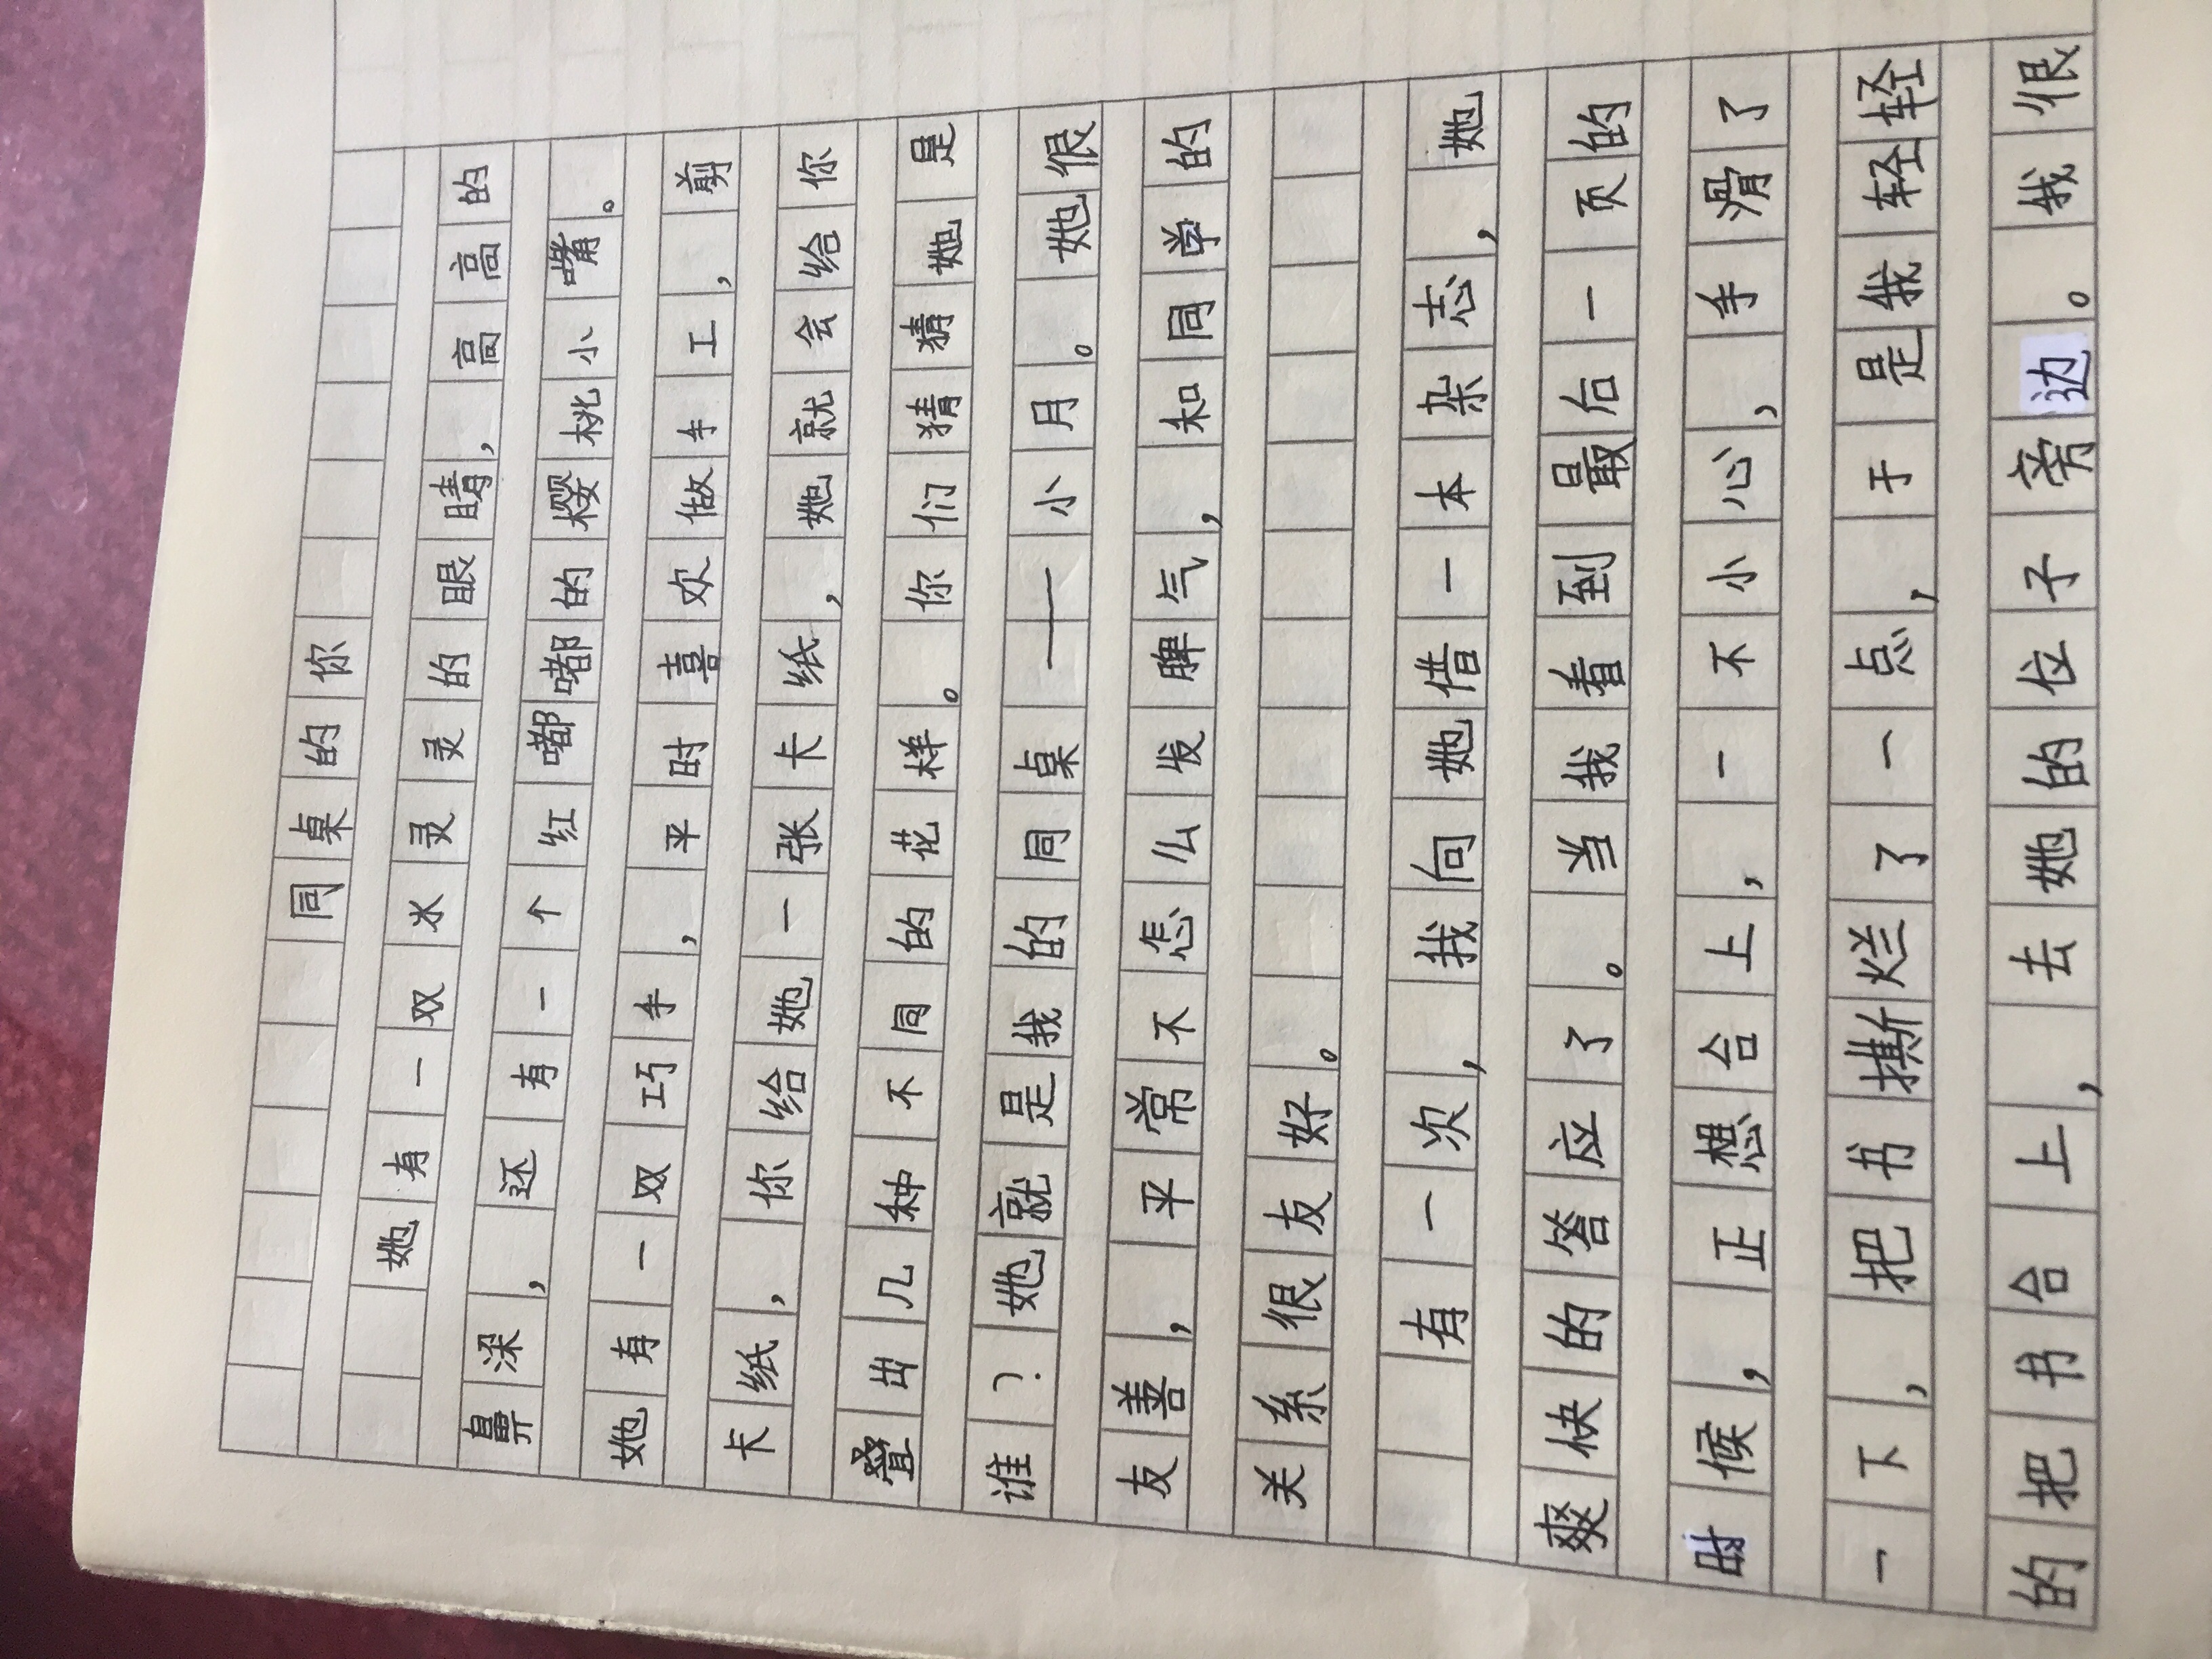 同桌的你
她有一双水灵灵的眼睛，高高的
鼻梁，还有一个红嘟嘟的樱桃小嘴。
她有一双巧手，平时喜欢做手工，剪
卡纸，你给她一张卡纸，她就会给你
叠出几种不同的花样。你们猜猜她是
谁？她就是我的同桌——小月。她很
友善，平常不怎么发脾气，和同学的
关系很友好。
有一次，我向她借一本杂志，她
爽快的答应了。当我看到最后一页的
时候，正想合上，一不小心，手滑了
一下，把书撕烂了一点，于是我轻轻
的把书合上，去她的位子旁边。我很